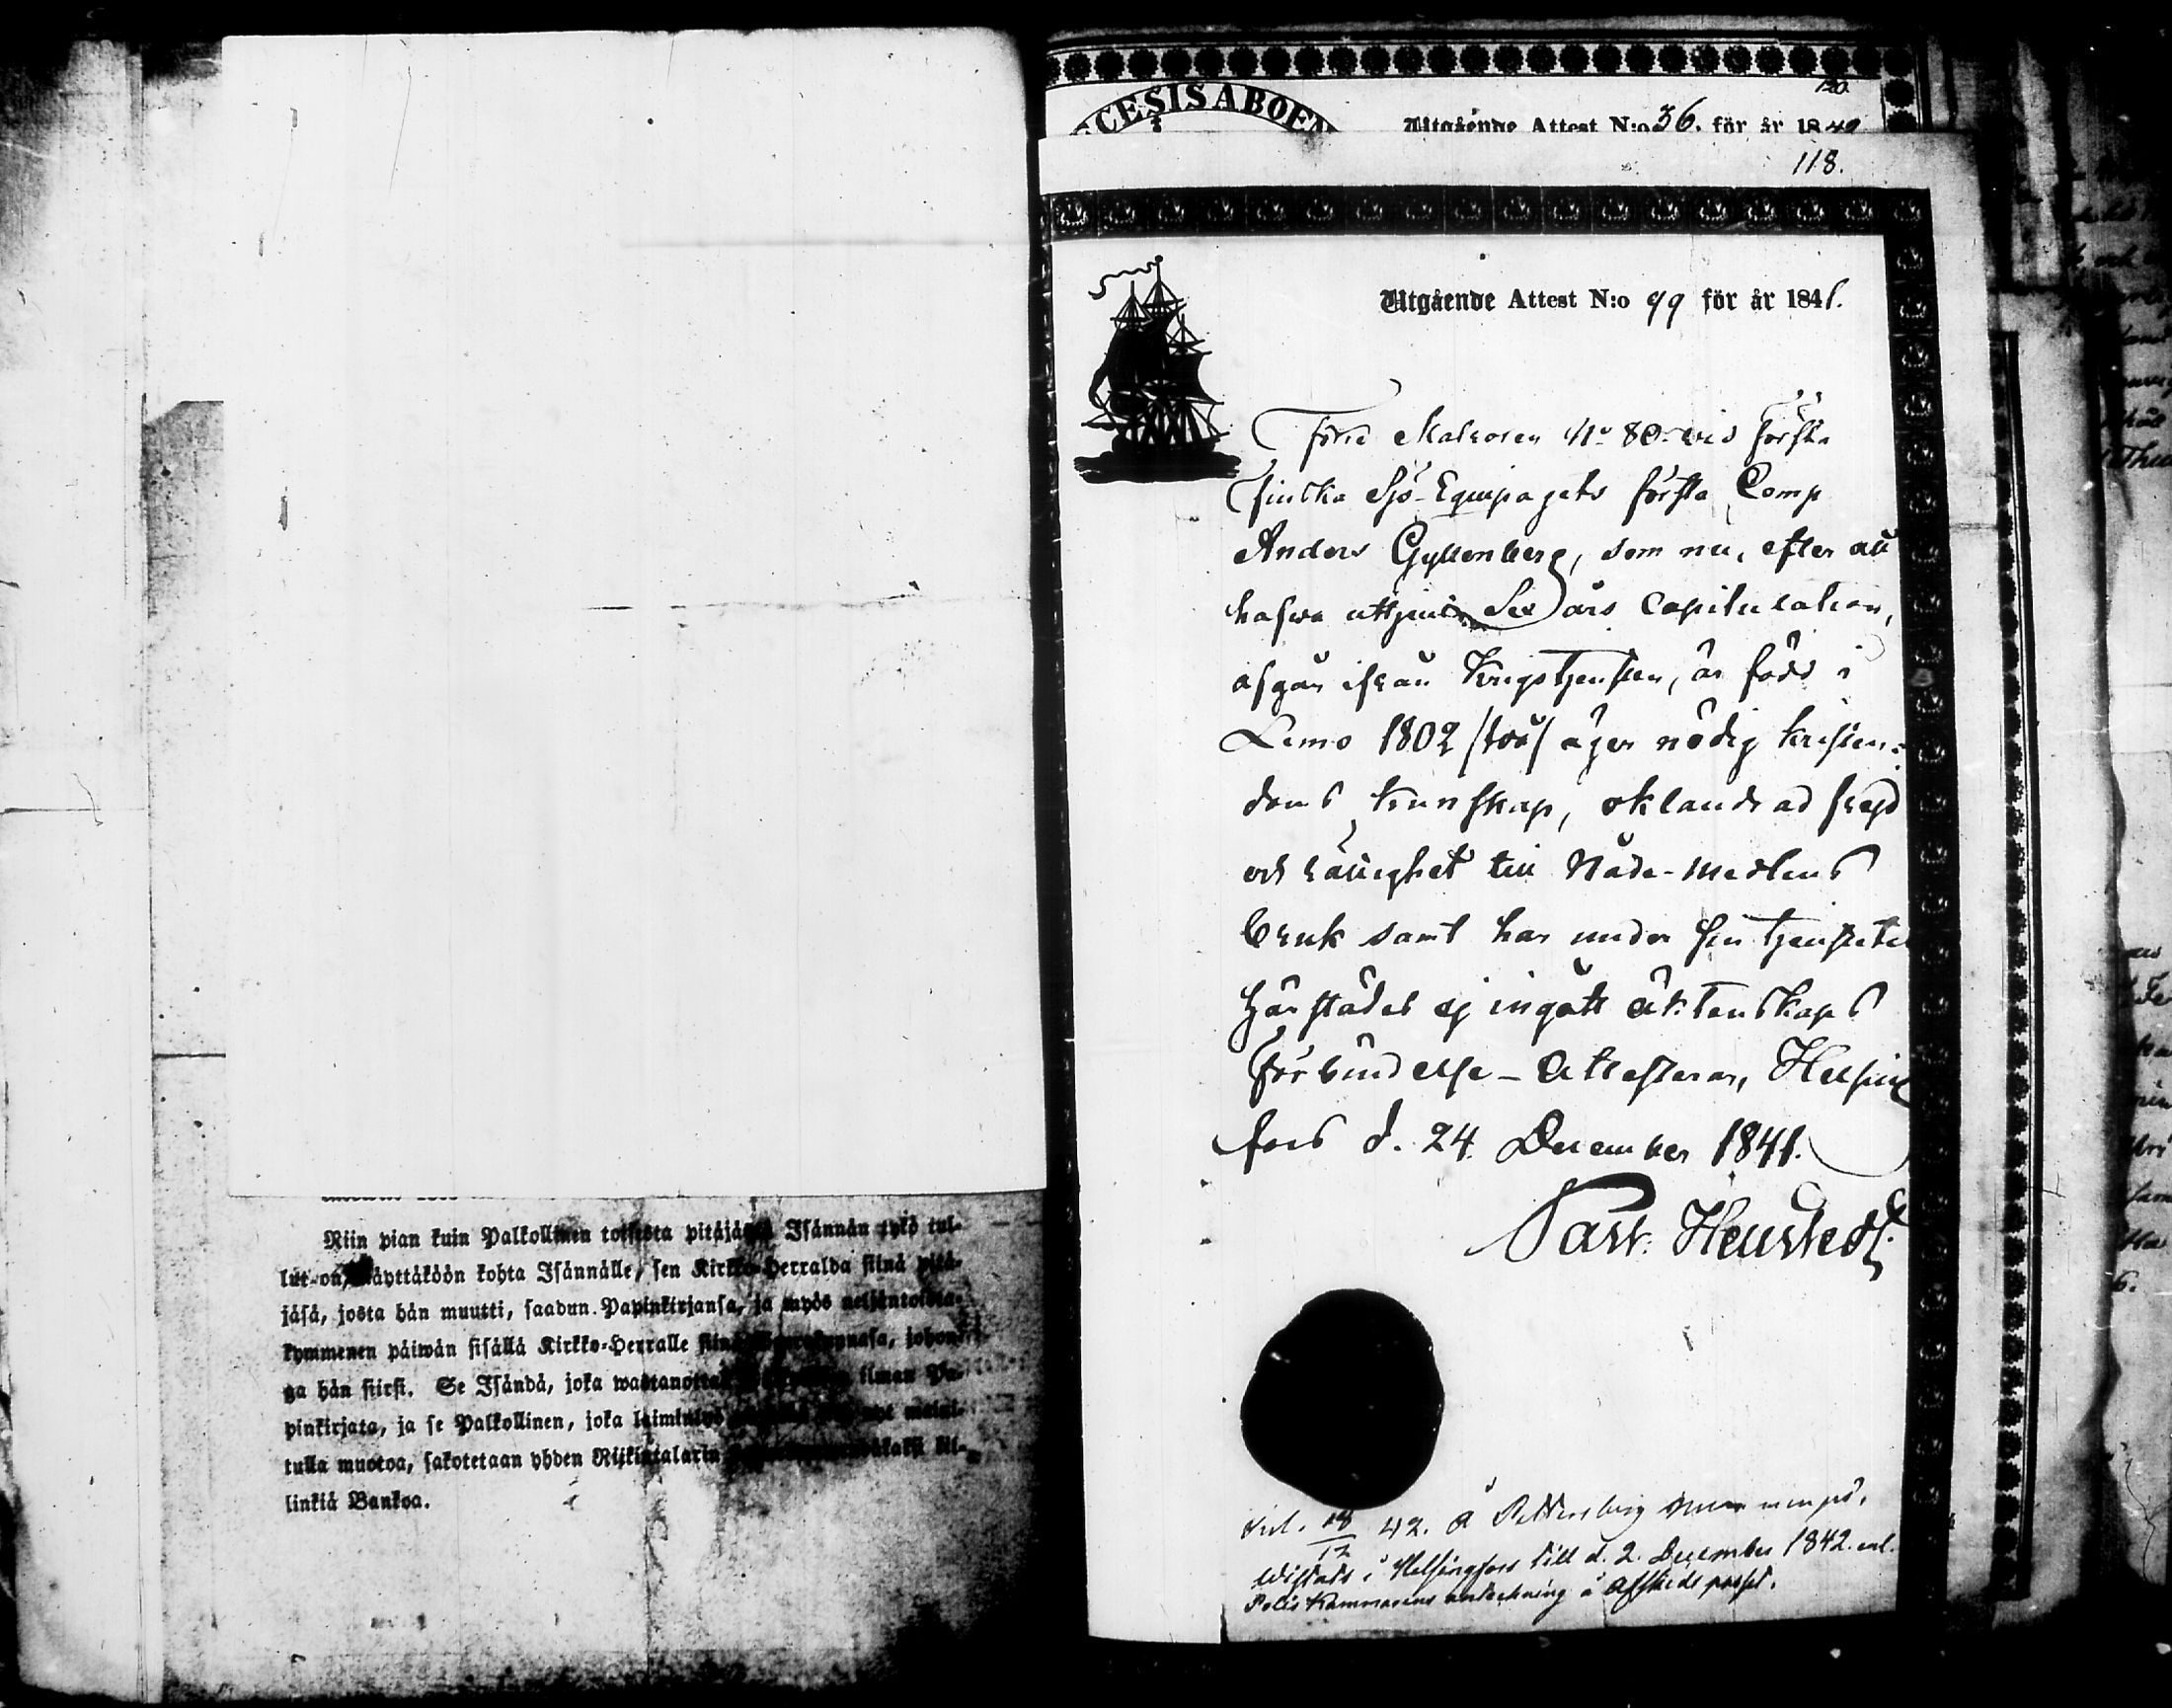 Niin pian kuin Palkollinen toisesta pitäjästä Isännän tykö tul-
lut on, näyttäköön kohta Isännälle, sen Kirkko-Herralda siinä pitä-
jäsä, josta hän muutti, saadun Papinkirjansa, ja myös neljäntoista-
kymmenen päiwän sisällä Kirkko-Herralle siinä johon-
ga hän siirsi. Se Isändä, joka wastanottaa ilman Pa-
pinkirjata, ja se Palkollinen, joka laiminlyö
tulla muotoa, sakotetaan yhden Riikintalarin kil-
linkiä Bankoa.
120.
CESIS ABOEN
Utgående Attest N:o 36. för år 1840
118.
Utgående Attest N:o 99 för år 1841.
Förre Matrosen No 80 vid Första
finska Sjö-Equipagets första Comp
Anders Gyllenberg, som nu, efter att
hafva uttjent Sex års Capitulation,
afgår ifrån Krigstjensten, är född i
Lemo 1802 /två/ äger nödig kristen-
doms kunskap, oklandrad frejd
och rättighet till Nåde-medlens
bruk samt har under sin tjenstetid
härstädes ej ingått äktenskaps
förbindelse – Attesterar, Helsing
fors d. 24 December 1841.
Past:
18/12 42. å
Wistats i Helsingfors till d. 2. December 1842. enl.
Polis Kammarens anteckning å Afskeds passet.